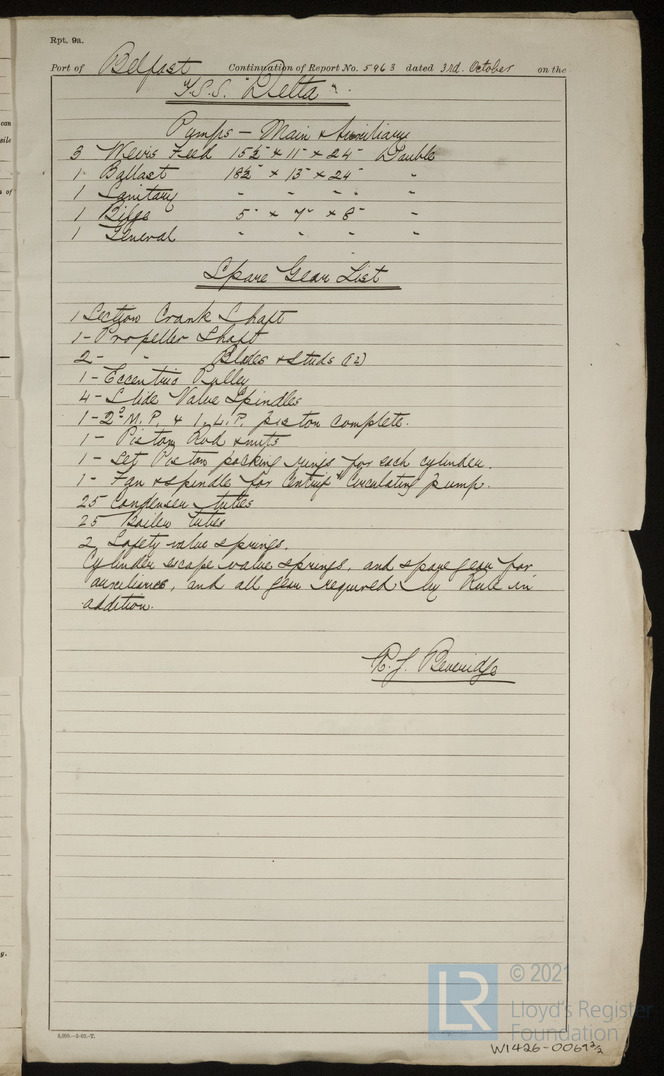 Rpt. 9a.
Port of Belfast Continuation of Report No. 5963 dated 3rd. October on the
T.S.S. "Delta".
Pumps - Main & Auxiliary
3 Weirs Feed 15½" x 11" x 24" Double
1 Ballast 18½" x 13" x 24" "
1 Sanitary " " " "
1 Bilge 5" x 7" x 8" "
1 General " " " "
Spare Gear List
1 Section Crank Shaft
1 - Propeller Shaft
2 - " Blades & Studs (12)
1 - Eccentric Pulley
4 - Slide Valve Spindles
1 - 2º M.P. & 1, L.P. piston complete.
1 - Piston Rod & nuts
1 - Set Piston packing rings for each cylinder.
1 - Fan & spindle for Centrifˡ Circulating pump.
25 Condenser tubes
25 Boiler tubes
2 Safety valve springs.
Cylinder escape valve springs, and spare gear for
auxiliaries, and all gear required by Rule in
addition.
R. J. Beveridge
5,000.-3-02.-T.
LR
© 2021
Lloyd's Register
Foundation
W1426-0069 2/2